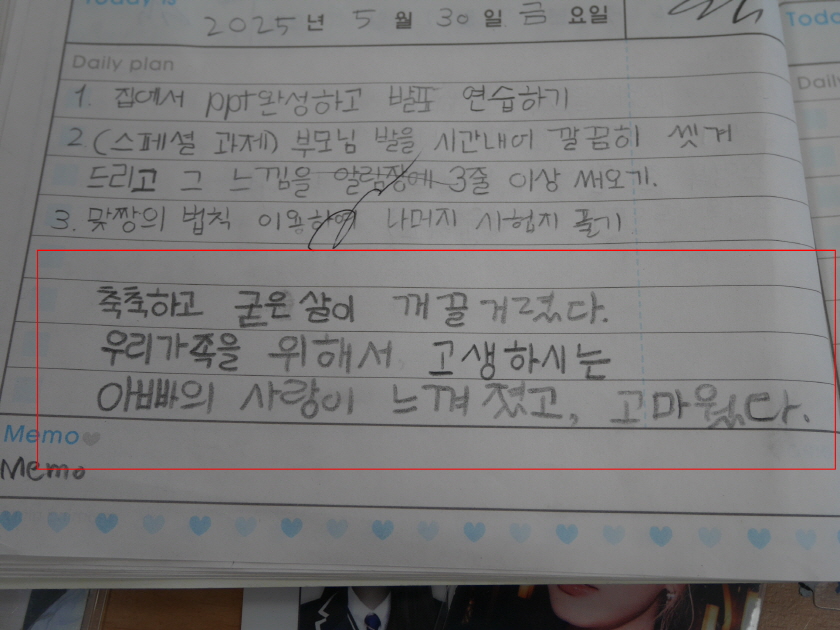 Today is
2025년 5월 30일 금요일
Today
Daily plan
Daily
1. 집에서 ppt완성하고 발표 연습하기
2 (스페셜 과제) 부모님 발을 시간내어 깔끔히 씻겨
드리고 그 느낌을 알림장에 3줄 이상 써오기.
3. 맞짱의 법칙 이용하여 나머지 시험지 풀기
축축하고 굳은살이 꺼끌거렸다.
우리가족을 위해서 고생하시는
아빠의 사랑이 느껴졌고, 고마웠다.
Memo
Memo